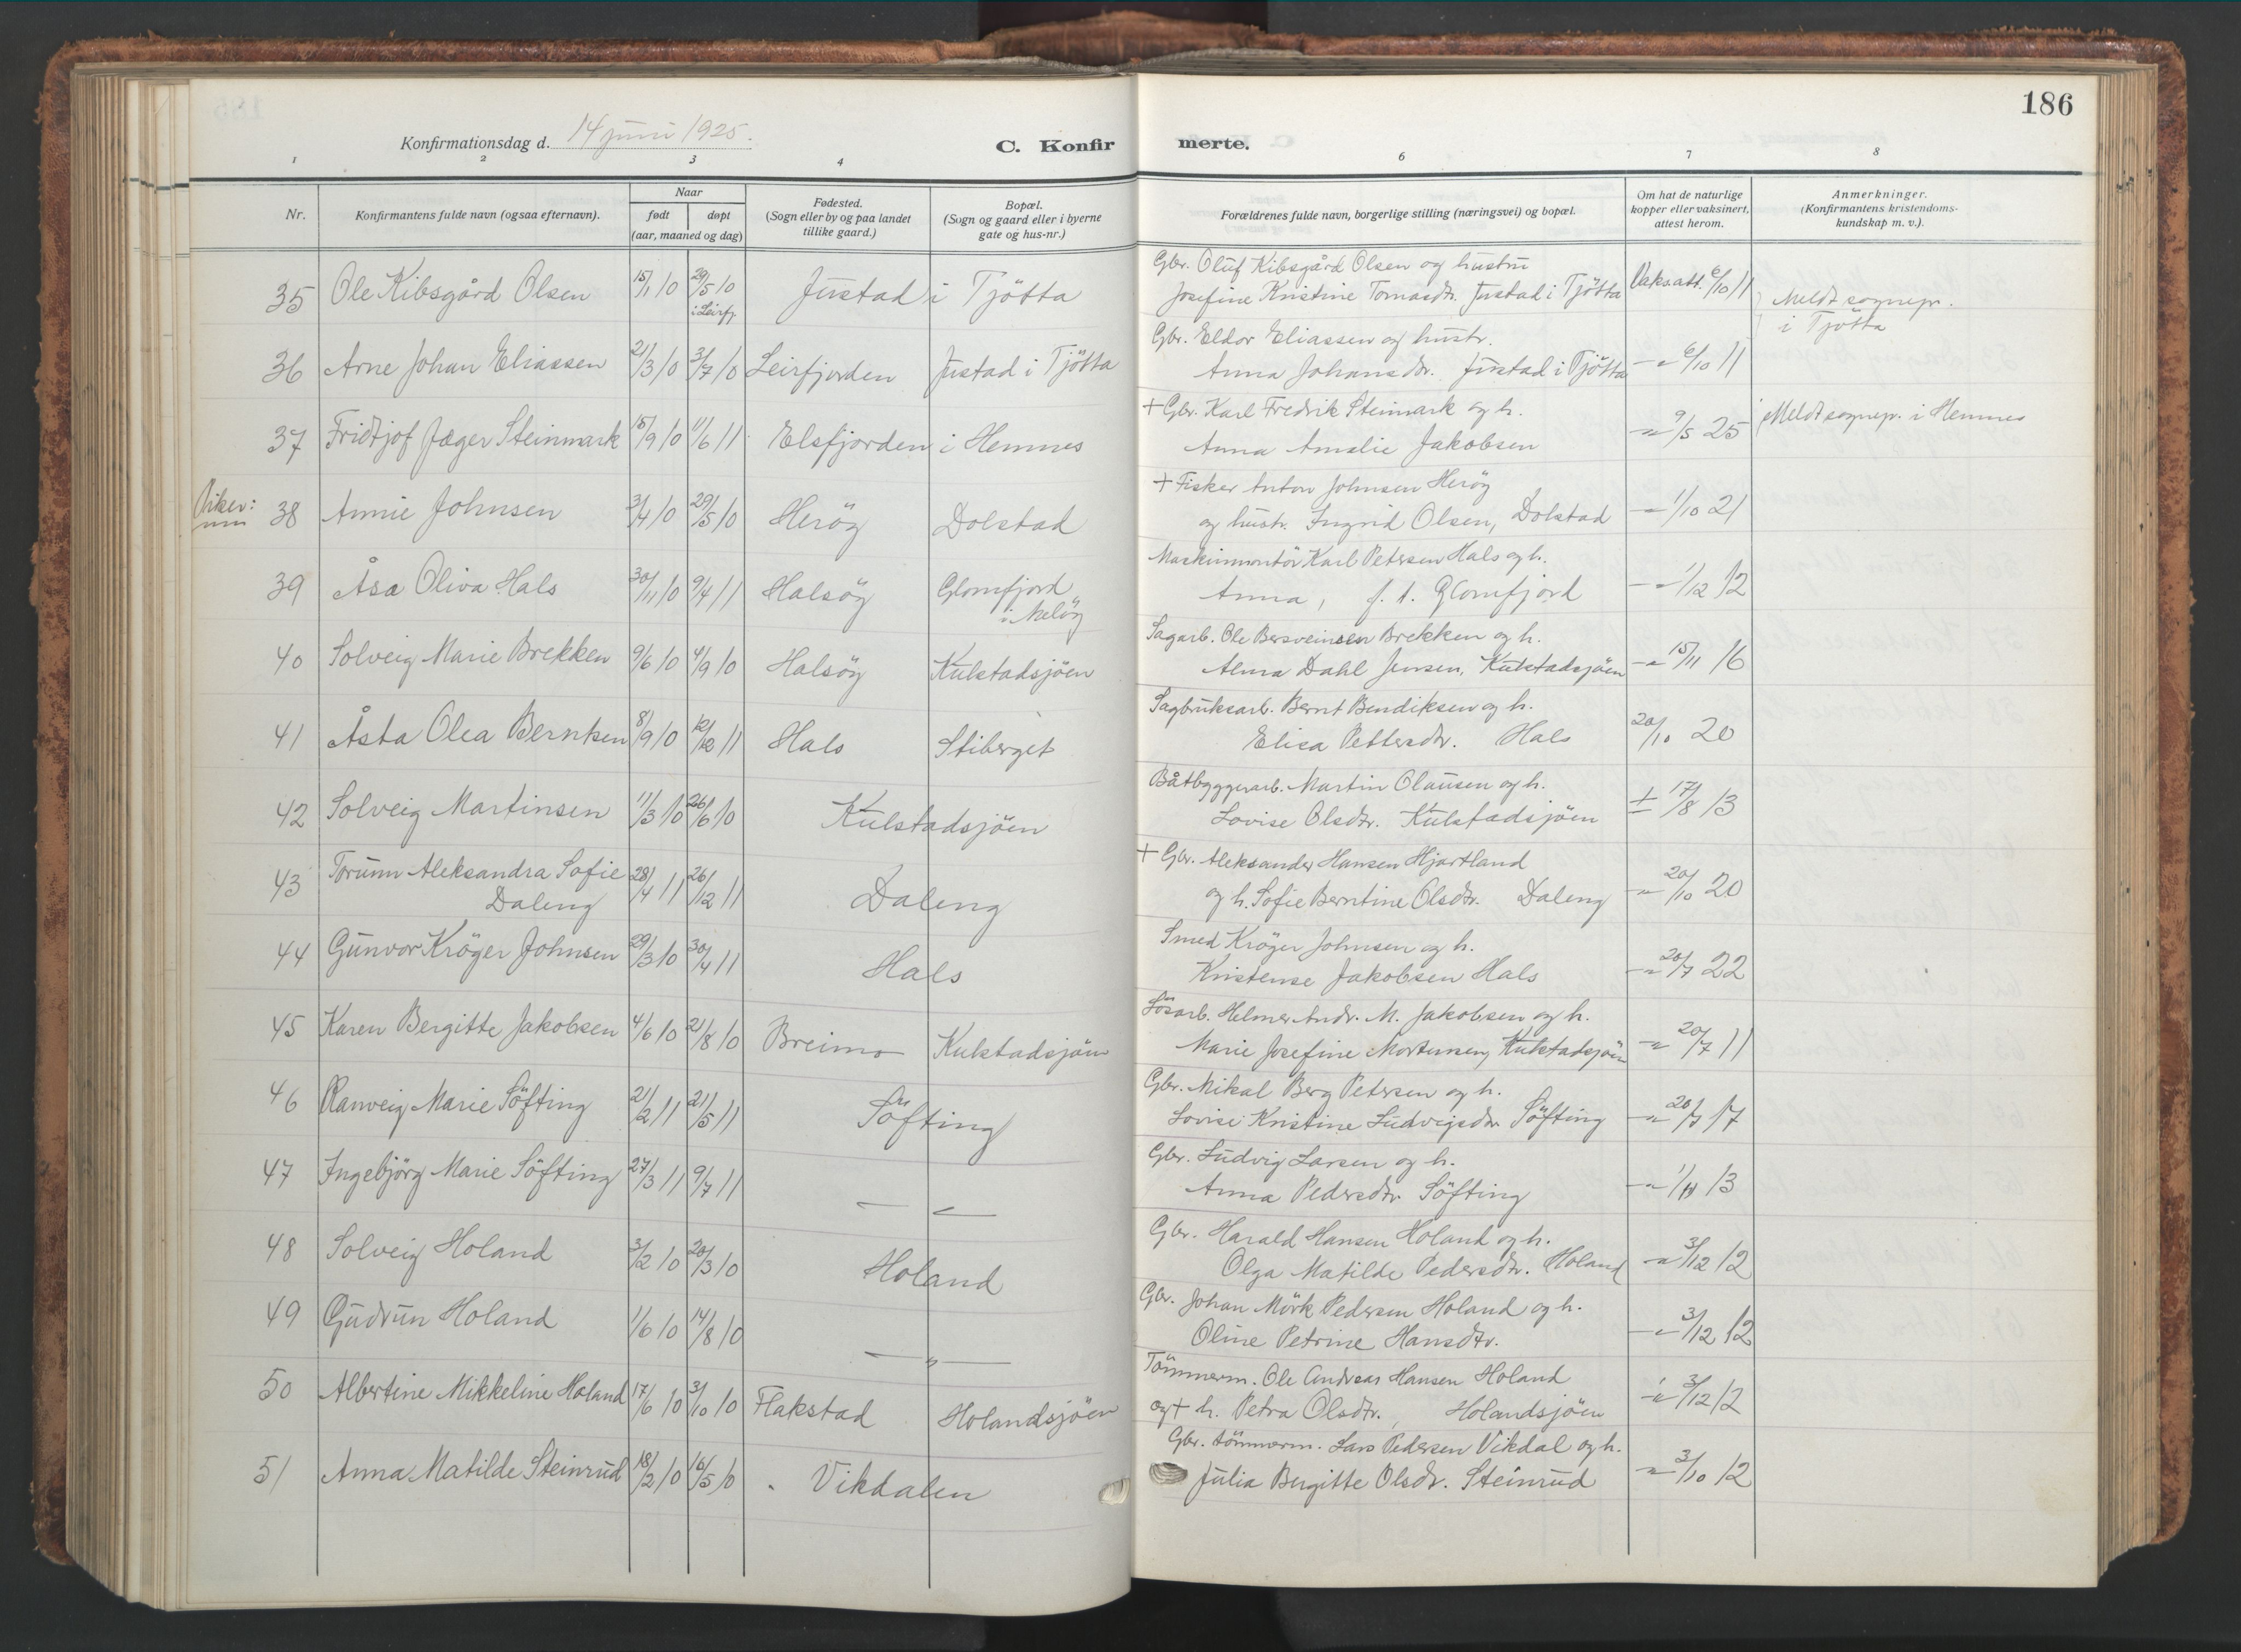 186
Konfirmationsdag d. 14 juni 1925.
C. Konfirmerte.
1 2 3 4 6 7 8
Nr.
Konfirmantens fulde navn (ogsaa efternavn).
Naar
født døpt
(aar, maaned og dag)
Fødested.
(Sogn eller by og paa landet
tillike gaard.)
Bopæl.
(Sogn og gaard eller i byerne
gate og hus-nr.)
Forældrenes fulde navn, borgerlige stilling (næringsvei) og bopæl.
Om hat de naturlige
kopper eller vaksinert,
attest herom.
Anmerkninger.
(Konfirmantens kristendoms-
kundskap m. v.).
35 Ole Kibsgård Olsen 15/1 10 29/5 10 i Leirfj. Jüstad i Tjötta
Gbr. Olüf Kibsgård Olsen og hüstrü
Josefine Kristine Tomasdr. Jüstad i Tjötta Vaks.att. 6/10 11
Meldt sognepr.
i Tjötta
36 Arne Johan Eliassen 21/3 10 3/7 10 Leirfjorden Jüstad i Tjötta
Gbr. Eldor Eliassen og hüstr.
Anna Johansdr. Jüstad i Tjötta -"- 6/10 11
37 Fridtjof Jæger Steinmark 15/9 10 11/6 11 Elsfjorden i Hemnes
+ Gbr. Karl Fredrik Steinmark og h.
Anna Amalie Jakobsen -"- 9/5 25
Meldt sognepr. i Hemnes
Piker:
38 Annie Johnsen 3/4 10 29/5 10 Heröy Dolstad
+ Fisker Anton Johnsen Heröy
og hüstr. Ingrid Olsen, Dolstad -"- 1/10 21
39 Åsa Oliva Hals 30/11 10 9/4 11 Halsöy Glomfjord
i Melöy
Maskinmontör Karl Petersen Hals og h.
Anna, f. t. Glomfjord -"- 1/12 12
40 Solveig Marie Brekken 9/6 10 4/9 10 Halsöy Külstadsjöen
Sagarb. Ole Bersveinsen Brekken og h.
Alma Dahl Jensen, Külstadsjöen -"- 15/11 16
41 Åsta Olea Berntsen 8/9 10 12/12 11 Hals Stiberget
Sagbrüksarb. Bernt Bendiksen og h.
Elisa Pettersdr. Hals 20/10 20
42 Solveig Martinsen 11/3 10 26/6 10 Külstadsjöen
Båtbyggerarb. Martin Olaüsen og h.
Lovise Olsdtr. Külstadsjöen 17/8 13
43 Torünn Aleksandra Sofie
Daleng 28/4 11 26/12 11 Daleng
+ Gbr. Aleksander Hansen Hjartland
og h. Sofie Berntine Olsdtr. Daleng -"- 20/10 20
44 Günvor Kröger Johnsen 29/3 10 30/4 11 Hals
Smed Kröger Johnsen og h.
Kristense Jakobsen Hals -"- 20/7 22
45 Karen Bergitte Jakobsen 4/6 10 21/8 10 Breimo Külstadsjöen
Lösarb. Helmer Andr. M. Jakobsen og h.
Marie Josefine Mortensen, Külstadsjöen -"- 20/7 11
46 Ranveig Marie Söfting 21/2 11 21/5 11 Söfting
Gbr. Mikal Berg Petersen og h.
Lovise Kristine Lüdvigsdtr. Söfting -"- 20/7 17
47 Ingebjörg Marie Söfting 27/3 11 9/7 11 — " —
Gbr. Lüdvig Larsen og h.
Anna Pedersdtr. Söfting -"- 1/11 13
48 Solveig Holand 3/2 10 20/3 10 Holand
Gbr. Harald Hansen Holand og h.
Olga Matilde Pedersdtr. Holand -"- 3/12 12
49 Güdrün Holand 1/6 10 14/8 10 — " —
Gbr. Johan Mörk Pedersen Holand og h.
Oline Petrine Hansdtr. -"- 3/12 12
50 Albertine Mikkeline Holand 17/6 10 3/10 10 Flakstad Holandsjöen
Tömmerm. Ole Andreas Hansen Holand
og + h. Petra Olsdtr., Holandsjöen -"- 3/12 12
51 Anna Matilde Steinrüd 18/2 10 16/5 10 Vikdalen
Gbr. tömmerm. Lars Pedersen Vikdal og h.
Jülia Bergitte Olsdr. Steinrüd -"- 3/10 12